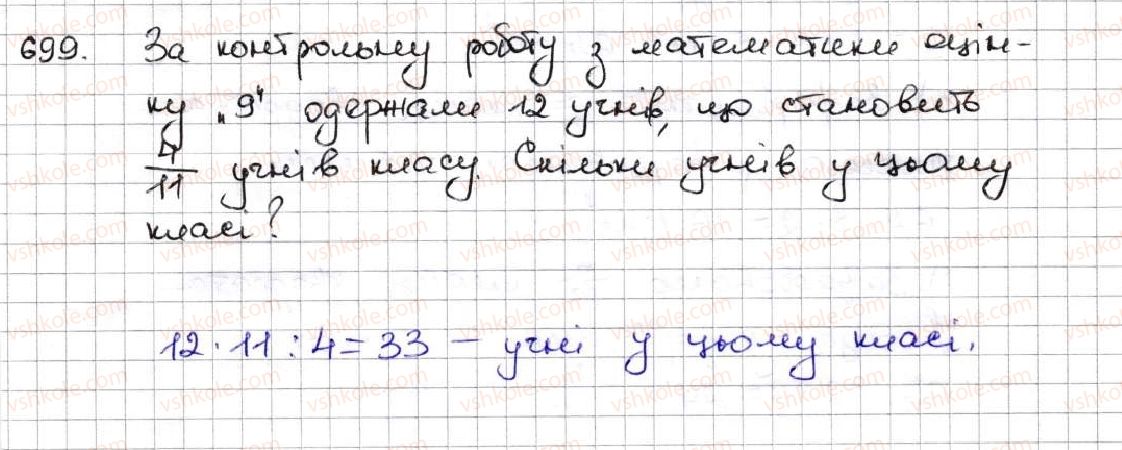 699. За контрольну роботу з математики оцін-
ку „9“ одержали 12 учнів, що становить
4/11 учнів класу. Скільки учнів у цьому
класі?
12 · 11 : 4 = 33 – учні у цьому класі.